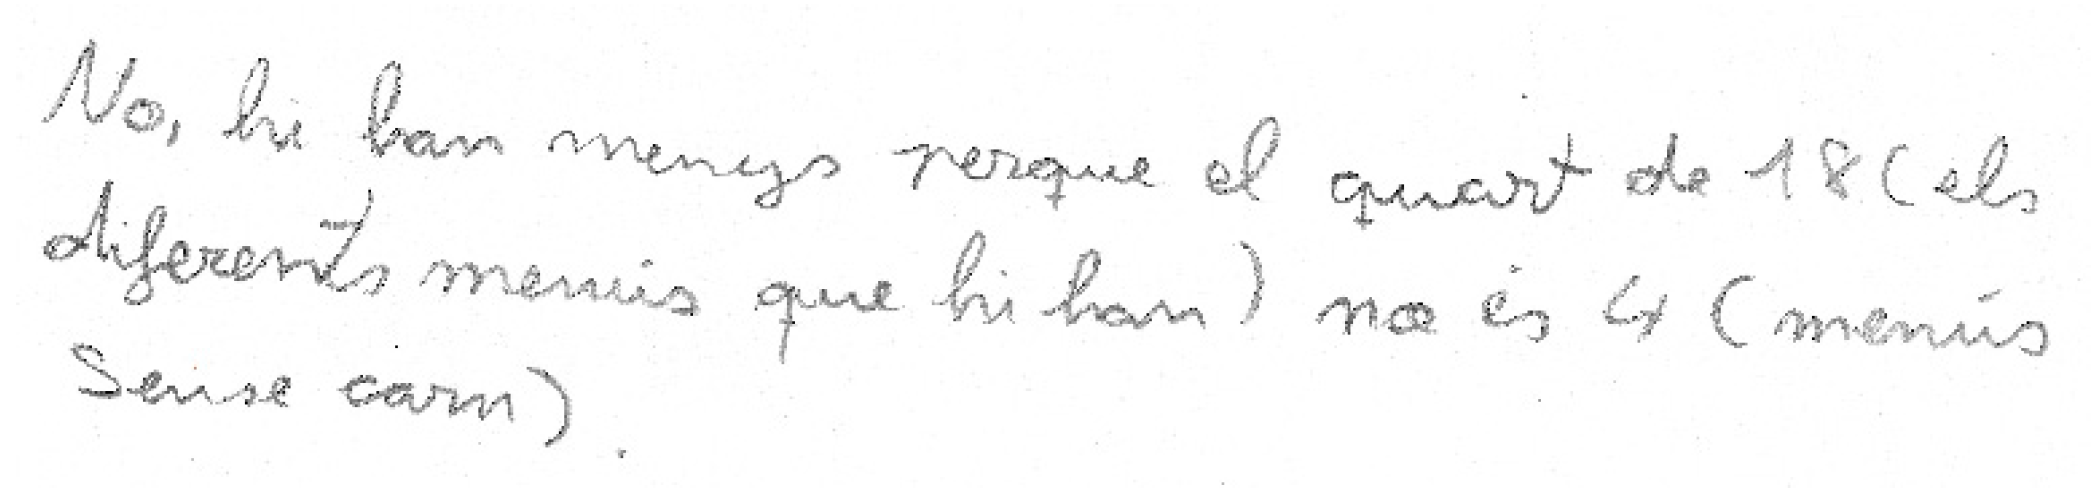 No, hi han menys perque el quart de 18 (els
diferents menús que hi han) no és 4 (menús
Sense carn).